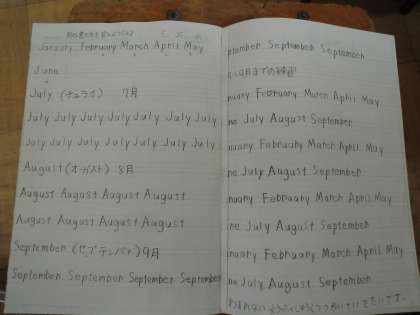 January February March April May
June
July (チュライ) 7月
July July July July July July July
July July July July July July July
August (オーガスト) 8月
August August August August
August August August August
September (セプテンバー) 9月
September September September September
ptember September September
9月までの練習
nuary February March April May
ne July August September
nuary February March April May
ne July August September
nuary February March April May
ne July August September
nuary February March April May
ne July August September